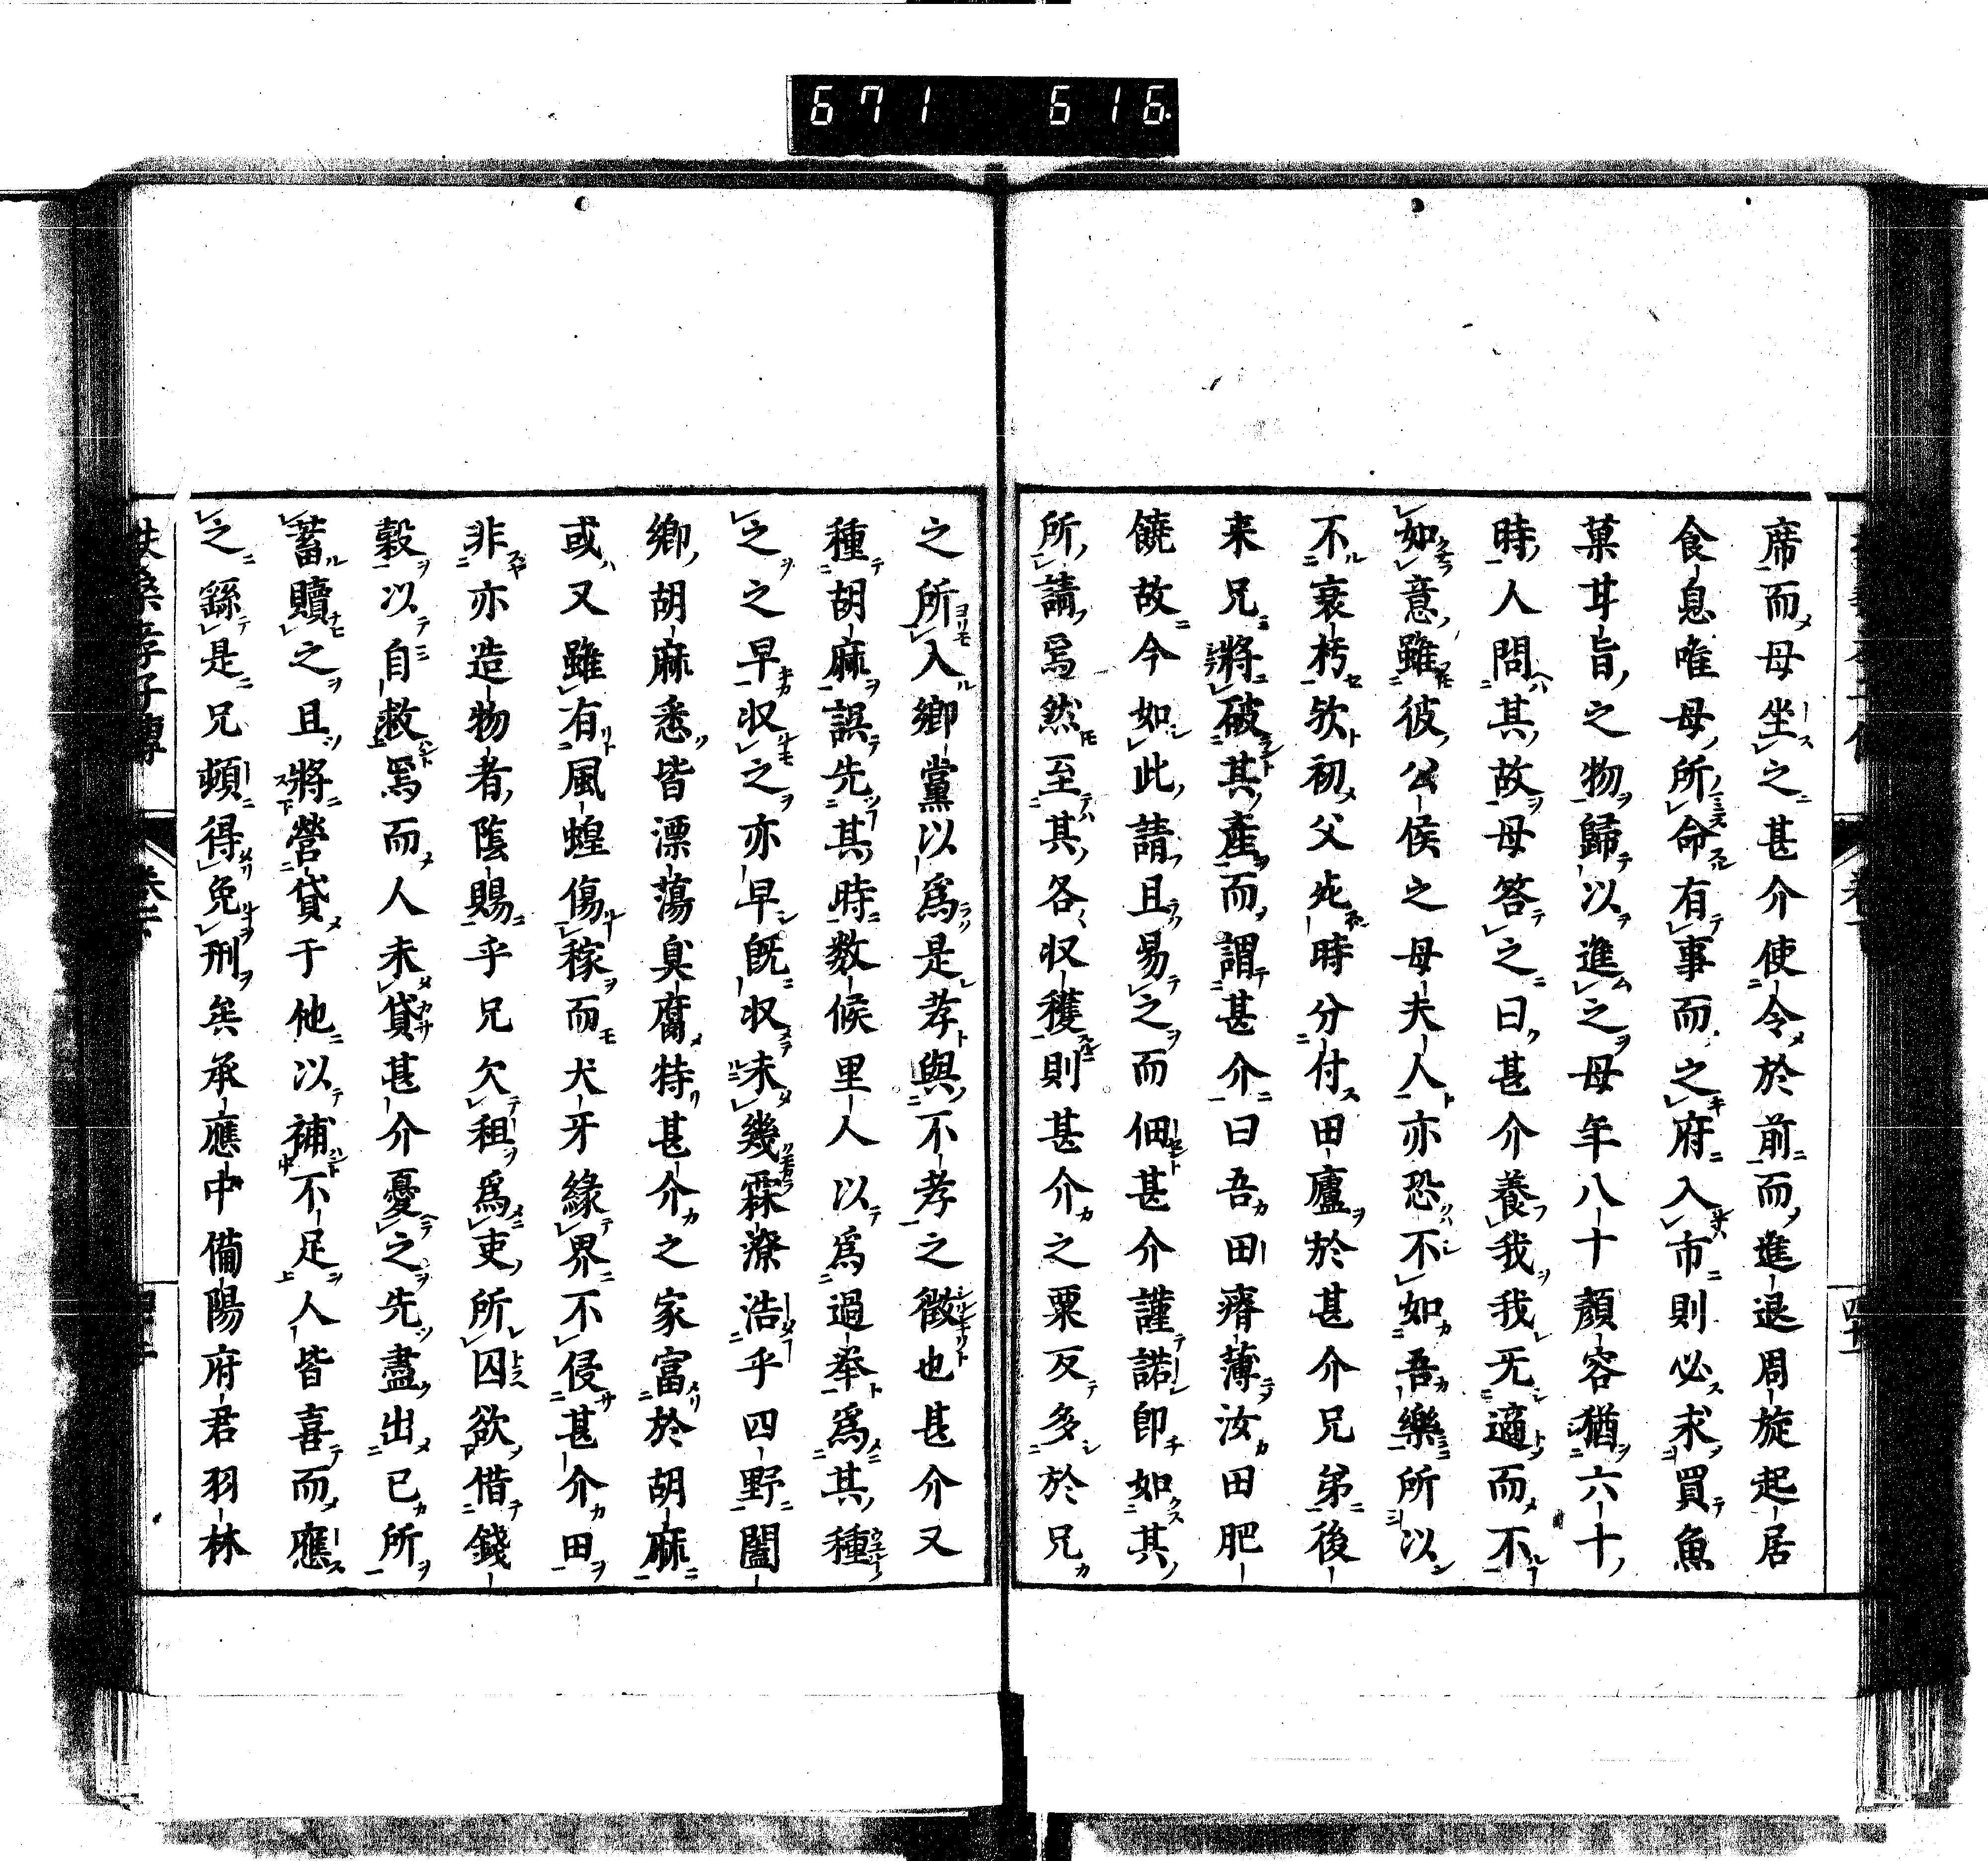 671 616
席而母坐之甚介使令於前而進退周旋起居
食息唯母所命有事而之府入市則必求買魚
菓甘旨之物歸以進之母年八十顏容猶六十
時人問其故母答之曰甚介養我我无適而不
如意雖彼公侯之母夫人亦恐不如吾樂所以
不衰朽欤初父死時分付田廬於甚介兄弟後
来兄將破其產而謂甚介曰吾田瘠薄汝田肥
饒故今如此請且易之而佃甚介謹諾即如其
所請焉然至其各収穫則甚介之粟反多於兄
之所入鄉黨以為是孝與不孝之徵也甚介又
種胡麻誤先其時数候里人以為過舉為其種
之之早収之亦早既収未幾霖潦浩乎四野闔
鄉胡麻悉皆漂蕩臭腐特甚介之家富於胡麻
或又雖有風蝗傷稼而犬牙緣界不侵甚介田
非亦造物者陰賜乎兄欠租為吏所囚欲借錢
穀以自救焉而人未貸甚介憂之先盡出已所
蓄贖之且將營貸于他以補不足人皆喜而應
之繇是兄頓得免刑矣承應中備陽府君羽林
扶桑孝子傳